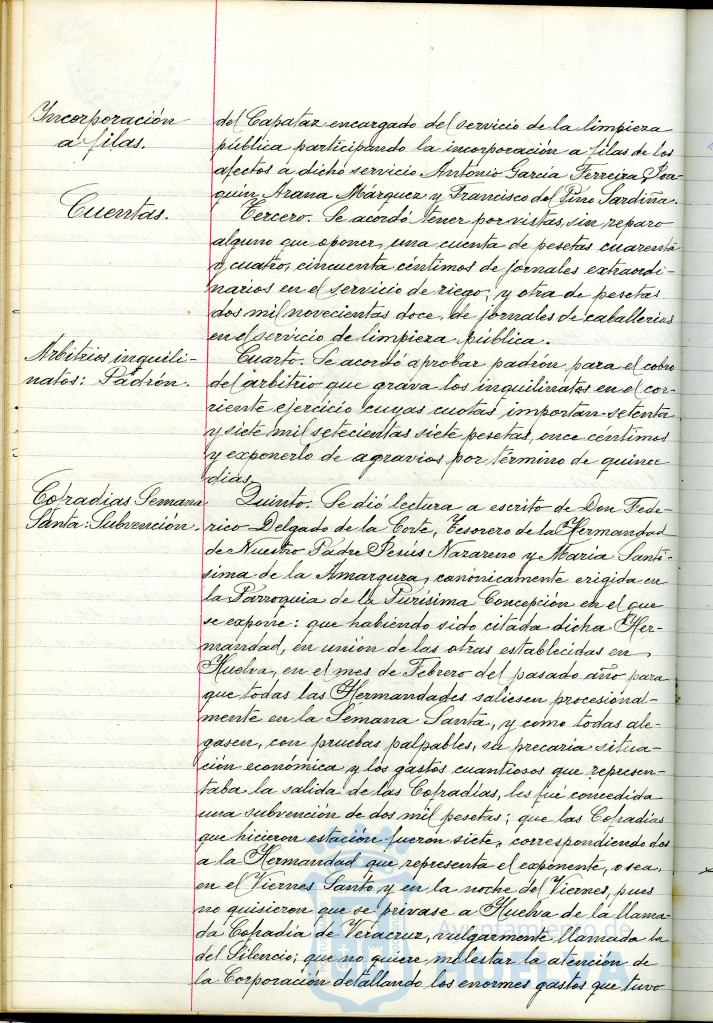 Incorporación
a filas.
del Capataz encargado del servicio de la limpieza
pública participando la incorporación a filas de los
afectos a dicho servicio Antonio García Ferreira, Joa-
quín Arana Márquez y Francisco del Pino Sardiña.
Cuentas.
Tercero. Se acordó tener por vistas, sin reparo
alguno que oponer, una cuenta de pesetas cuarenta
y cuatro, cincuenta céntimos de jornales extraordi-
narios en el servicio de riego; y otra de pesetas
dos mil novecientas doce, de jornales de caballerias
en el servicio de limpieza pública.
Arbitrios inquili-
natos: Padrón.
Cuarto. Se acordó aprobar padrón para el cobro
del arbitrio que grava los inquilinatos en el cor-
riente ejercicio cuyas cuotas importan setenta
y siete mil setecientas siete pesetas, once céntimos
y exponerlo de agravios por término de quince
dias.
Cofradías Semana
Santa: Subvención.
Quinto. Se dió lectura a escrito de Don Fede-
rico Delgado de la Corte, Tesorero de la Hermandad
de Nuestro Padre Jesús Nazareno y María Santí-
sima de la Amargura, canónicamente erigida en
la Parroquia de la Purísima Concepción en el que
se expone: que habiendo sido citada dicha Her-
mandad, en unión de las otras establecidas en
Huelva, en el mes de Febrero del pasado año para
que todas las Hermandades saliesen procesional-
mente en la Semana Santa, y como todas ale-
gasen, con pruebas palpables, su precaria situa-
ción económica y los gastos cuantiosos que represen-
taba la salida de las Cofradías, les fué concedida
una subvención de dos mil pesetas; que las Cofradías
que hicieron estación fueron siete, correspondiendo dos
a la Hermandad que representa el exponente, o sea,
en el Viernes Santo y en la noche del Viernes, pues
no quisieron que se privase a Huelva de la llama-
da Cofradía de Veracruz, vulgarmente llamada la
del Silencio; que no quiere molestar la atención de
la Corporación detallando los enormes gastos que tuvo
Ayuntamiento de
HUELVA